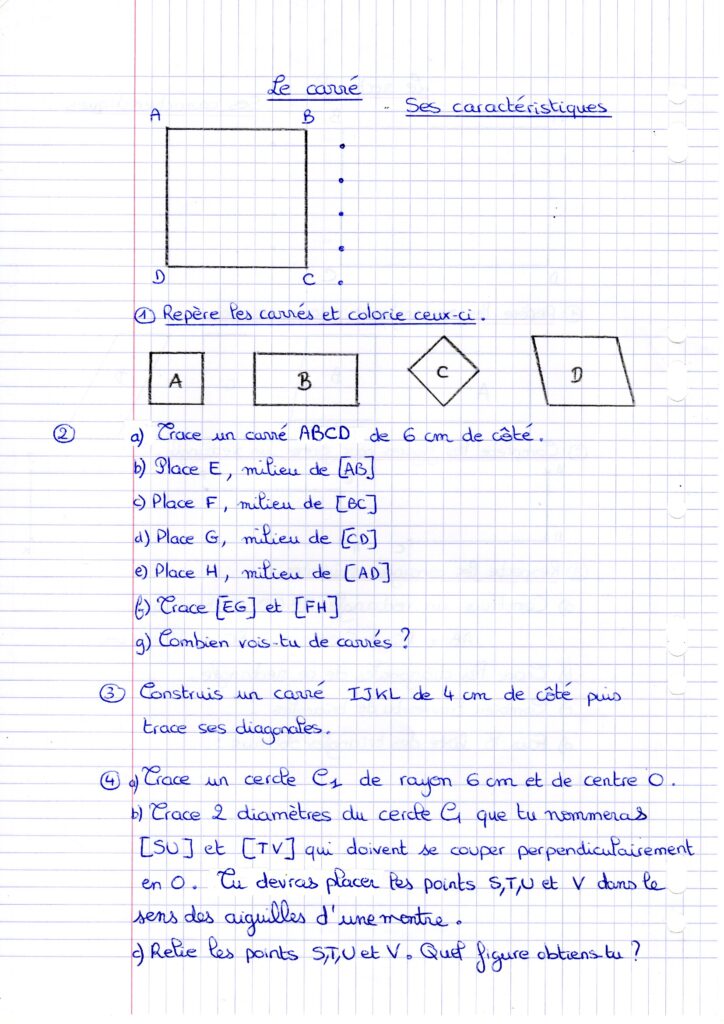 Le carré
Ses caractéristiques
A
B
D
C
① Repère les carrés et colorie ceux-ci.
A
B
C
D
② a) Trace un carré ABCD de 6 cm de côté.
b) Place E, milieu de [AB]
c) Place F, milieu de [BC]
d) Place G, milieu de [CD]
e) Place H, milieu de [AD]
f) Trace [EG] et [FH]
g) Combien vois-tu de carrés ?
③ Construis un carré IJKL de 4 cm de côté puis
trace ses diagonales.
④ a) Trace un cercle C1 de rayon 6 cm et de centre O.
b) Trace 2 diamètres du cercle C1 que tu nommeras
[SU] et [TV] qui doivent se couper perpendiculairement
en O. Tu devras placer les points S,T,U et V dans le
sens des aiguilles d'une montre.
c) Relie les points S,T,U et V. Quel figure obtiens-tu ?